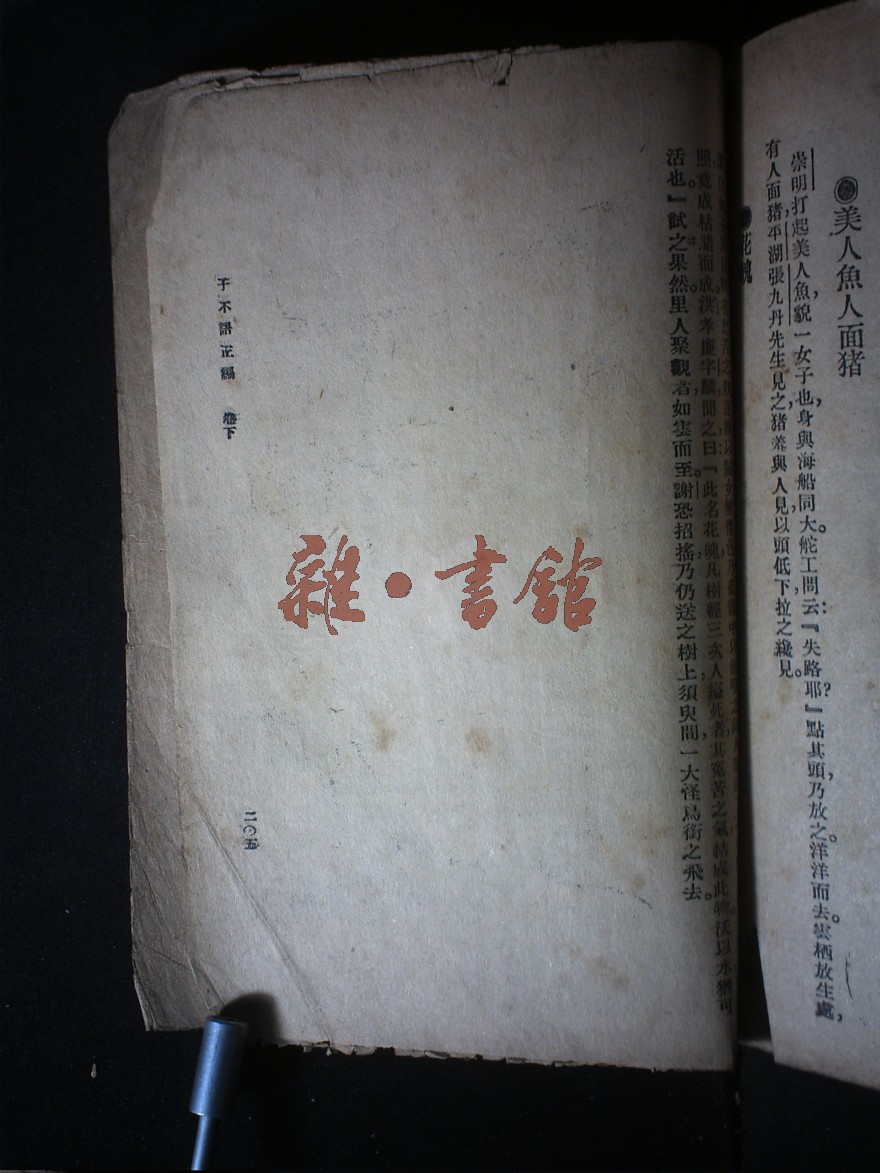 ◉美人魚人面猪
崇明打起美人魚，貌一女子也，身與海船同大。舵工問云：『失路耶？』點其頭，乃放之。洋洋而去。雲栖放生處，
有人面猪，平湖張九丹先生見之，猪羞與人見，以頭低下，拉之纔見。
◉花魄
照，竟成枯腊而成。洪孝廉字麟聞之曰：『此名花魄，凡樹經三次人縊死者，其冤苦之氣結成此物，沃以水，猶可
活也。』試之果然。里人聚觀者如雲而至。謝恐招搖，乃仍送之樹上。須臾間，一大怪鳥銜之飛去。
子不語正編 卷下
二〇五
雜·書館